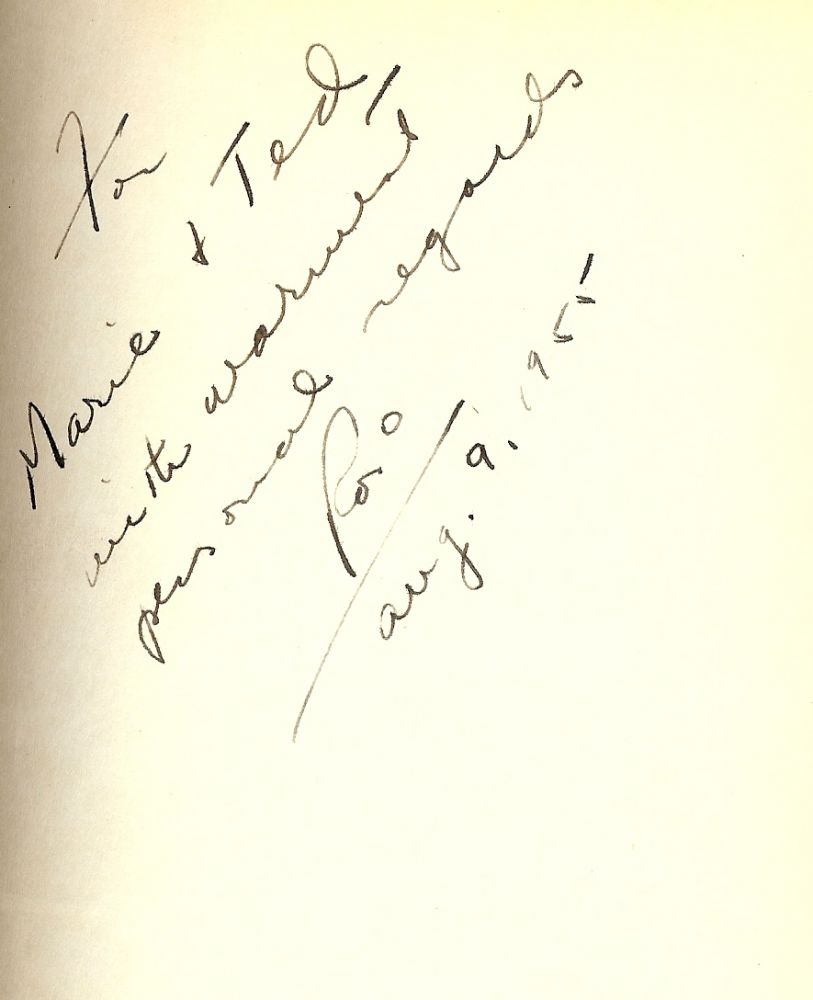 For
Marie & Ted,
with warmest
personal regards
Aug. 9, 1955